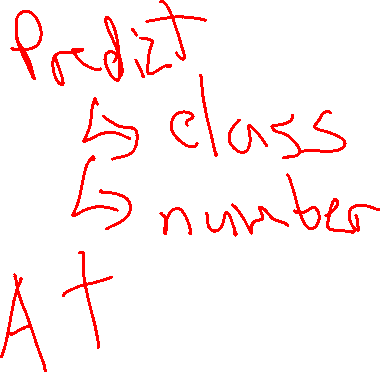 Predict
↳ class
↳ number
At